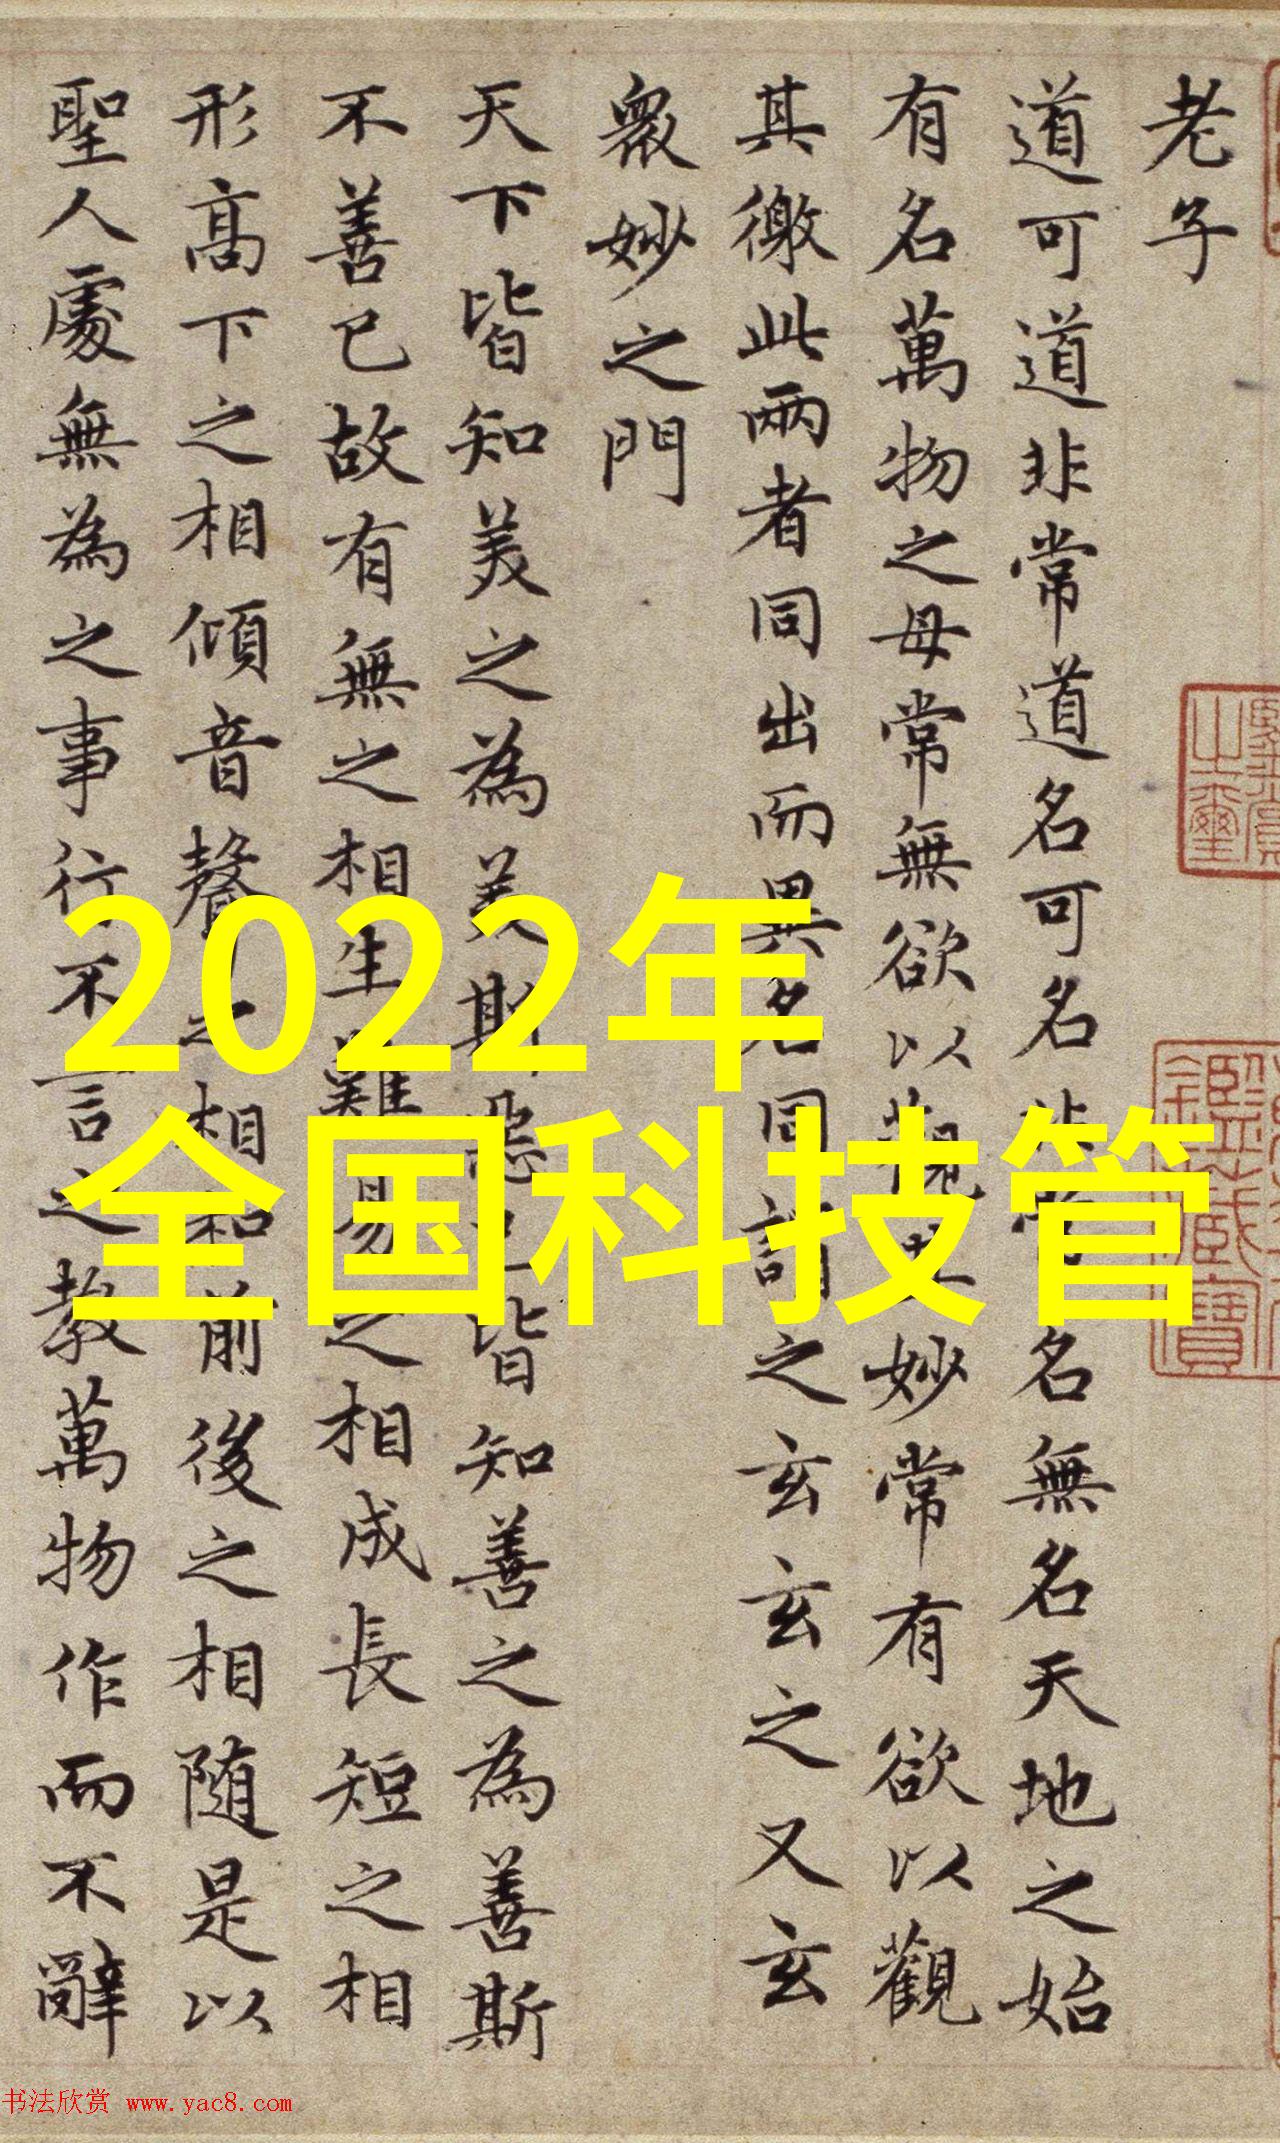 老子
道可道非常道名可名非常名無名天地之始
有名萬物之母常無欲以觀其妙常有欲以觀
其徼此兩者同出而異名同謂之玄玄之又玄
衆妙之門
天下皆知美之為美斯惡已皆知善之為善斯
不善已故有無之相生難易之相成長短之相
形高下之相傾音聲之相和前後之相随是以
聖人處無為之事行不言之教萬物作而不辭
2022年
全国科技管
书法欣赏 www.yac8.com